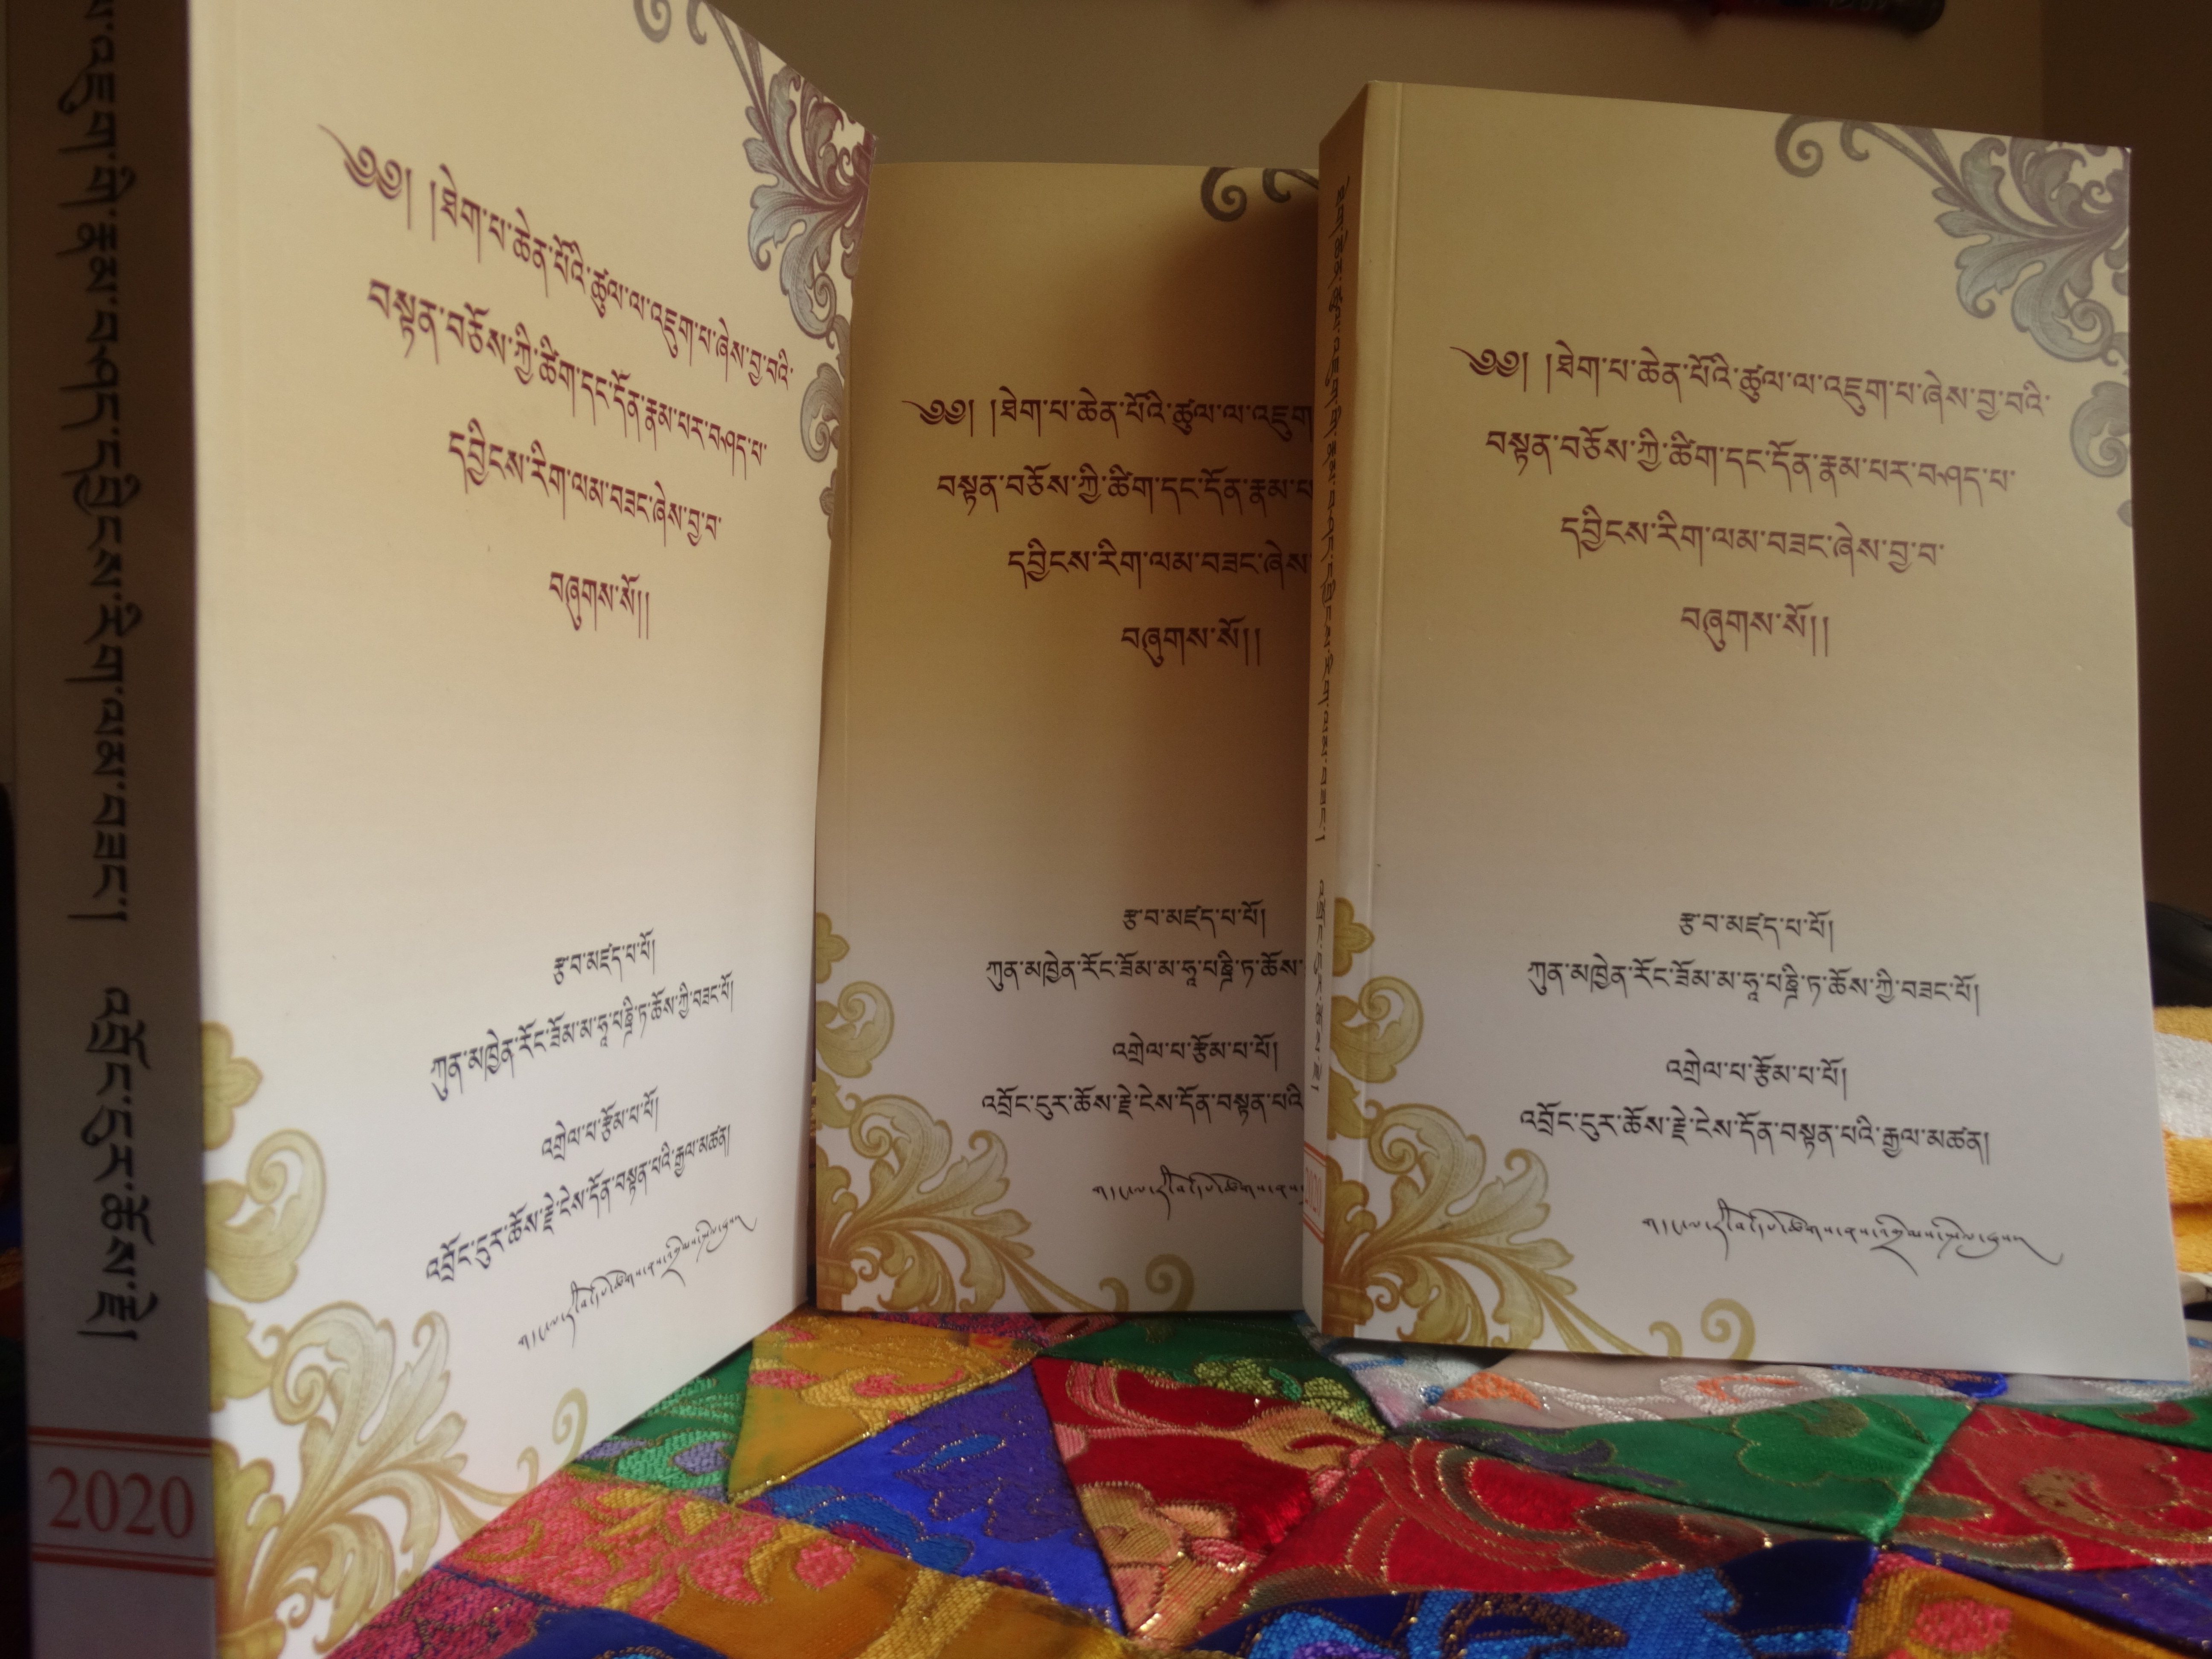 འཇུག་གི་རྣམ་བཤད་དབྱིངས་རིག་ལམ་བཟང་།
འབྲོང་དུར་ཆོས་རྗེ།
2020
༄༅། །ཐེག་པ་ཆེན་པོའི་ཚུལ་ལ་འཇུག་པ་ཞེས་བྱ་བའི་
བསྟན་བཅོས་ཀྱི་ཚིག་དང་དོན་རྣམ་པར་བཤད་པ་
དབྱིངས་རིག་ལམ་བཟང་ཞེས་བྱ་བ་
བཞུགས་སོ།།
རྩ་བ་མཛད་པ་པོ།
ཀུན་མཁྱེན་རོང་ཟོམ་མ་ཧཱ་པཎྜི་ཏ་ཆོས་ཀྱི་བཟང་པོ།
འགྲེལ་པ་རྩོམ་པ་པོ།
འབྲོང་དུར་ཆོས་རྗེ་ངེས་དོན་བསྟན་པའི་རྒྱལ་མཚན།
༄༅། །ཐེག་པ་ཆེན་པོའི་ཚུལ་ལ་འཇུག
བསྟན་བཅོས་ཀྱི་ཚིག་དང་དོན་རྣམ་པ
དབྱིངས་རིག་ལམ་བཟང་ཞེས་
བཞུགས་སོ།།
རྩ་བ་མཛད་པ་པོ།
ཀུན་མཁྱེན་རོང་ཟོམ་མ་ཧཱ་པཎྜི་ཏ་ཆོས་
འགྲེལ་པ་རྩོམ་པ་པོ།
འབྲོང་དུར་ཆོས་རྗེ་ངེས་དོན་བསྟན་པའི
ཐེག་ཆེན་ཚུལ་འཇུག་གི་རྣམ་བཤད་དབྱིངས་རིག་ལམ་བཟང་།
འབྲོང་དུར་ཆོས་རྗེ།
༄༅། །ཐེག་པ་ཆེན་པོའི་ཚུལ་ལ་འཇུག་པ་ཞེས་བྱ་བའི་
བསྟན་བཅོས་ཀྱི་ཚིག་དང་དོན་རྣམ་པར་བཤད་པ་
དབྱིངས་རིག་ལམ་བཟང་ཞེས་བྱ་བ་
བཞུགས་སོ།།
རྩ་བ་མཛད་པ་པོ།
ཀུན་མཁྱེན་རོང་ཟོམ་མ་ཧཱ་པཎྜི་ཏ་ཆོས་ཀྱི་བཟང་པོ།
འགྲེལ་པ་རྩོམ་པ་པོ།
འབྲོང་དུར་ཆོས་རྗེ་ངེས་དོན་བསྟན་པའི་རྒྱལ་མཚན།